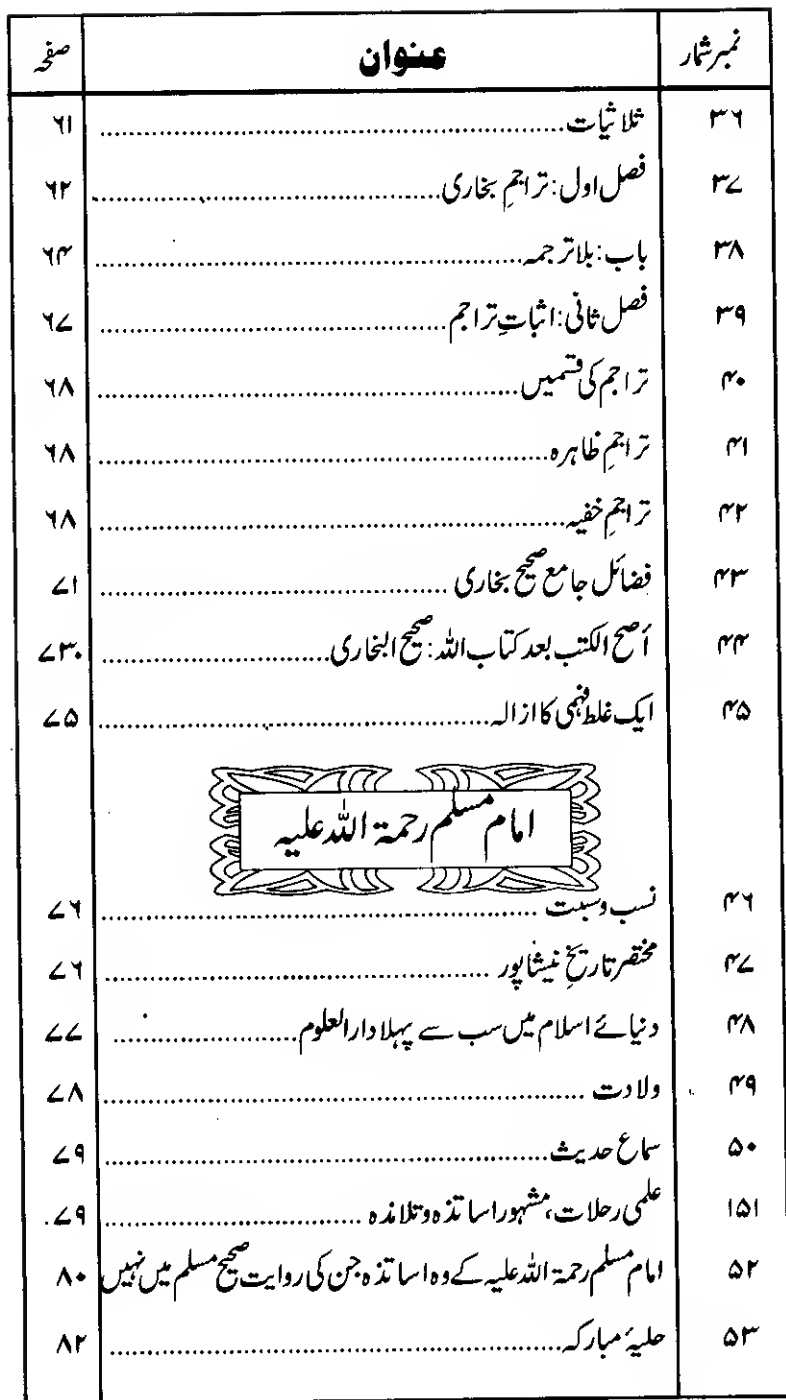 نمبرشمار عنوان صفحہ
۳۶ ثلاثیات ۶۱
۳۷ فصل اول: تراجمِ بخاری ۶۲
۳۸ باب: بلاترجمہ ۶۴
۳۹ فصل ثانی: اثباتِ تراجم ۶۷
۴۰ تراجم کی قسمیں ۶۸
۴۱ تراجمِ ظاہرہ ۶۸
۴۲ تراجمِ خفیہ ۶۸
۴۳ فضائل جامع صحیح بخاری ۷۱
۴۴ أصح الکتب بعد کتاب اللہ: صحیح البخاری ۷۳۰
۴۵ ایک غلط فہمی کا ازالہ ۷۵
امام مسلم رحمۃ اللہ علیہ
۴۶ نسب وسبت ۷۶
۴۷ مختصر تاریخِ نیشاپور ۷۶
۴۸ دنیائے اسلام میں سب سے پہلا دارالعلوم ۷۷
۴۹ ولادت ۷۸
۵۰ سماع حدیث ۷۹
۱۵۱ علمی رحلات، مشہور اساتذہ وتلامذہ ۷۹
۵۲ امام مسلم رحمۃ اللہ علیہ کے وہ اساتذہ جن کی روایت صحیح مسلم میں نہیں ۸۰
۵۳ حلیۂ مبارکہ ۸۲